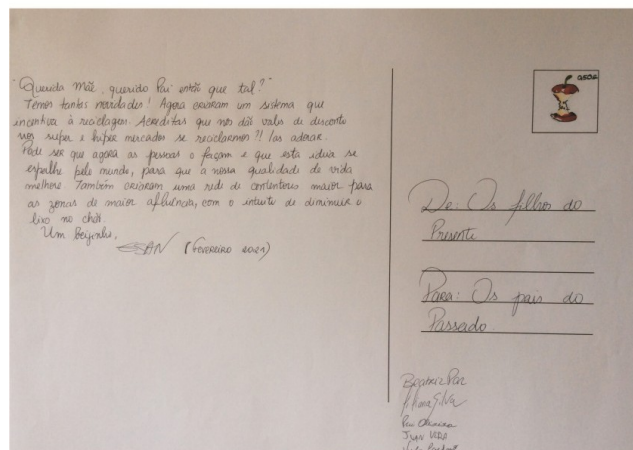 "Querida Mãe, querido Pai então que tal?"
Temos tantas novidades! Agora criaram um sistema que
incentiva à reciclagem. Acreditas que nos dão vales de desconto
nos super e hiper mercados se reciclarmos?! Ias adorar.
Pode ser que agora as pessoas o façam e que esta ideia se
espalhe pelo mundo, para que a nossa qualidade de vida
melhore. Também criaram uma rede de contentores maior para
as zonas de maior afluência, com o intuito de diminuir o
lixo no chão.
Um beijinho,
(FEVEREIRO 2021)
De: Os filhos do
Presente
Para: Os pais do
Passado
Beatriz Paz
Silva
Oliveira
JUAN VERA